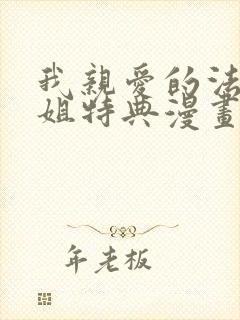 我親愛的法
姐特典漫畫
年老板